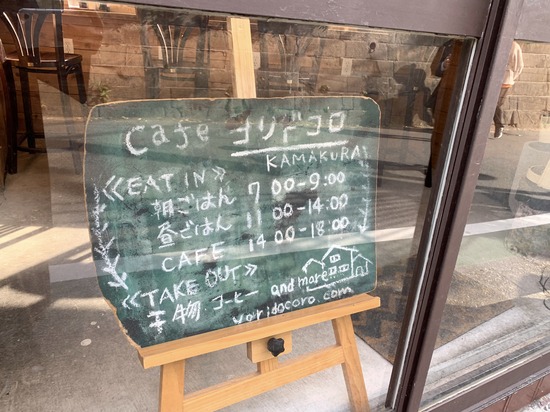 Cafe ヨリドコロ
KAMAKURA
≪EAT IN≫
朝ごはん 7:00-9:00
昼ごはん 11:00-14:00
CAFE 14:00-18:00
≪TAKE OUT≫
干物・コーヒー and more
yoridocoro.com